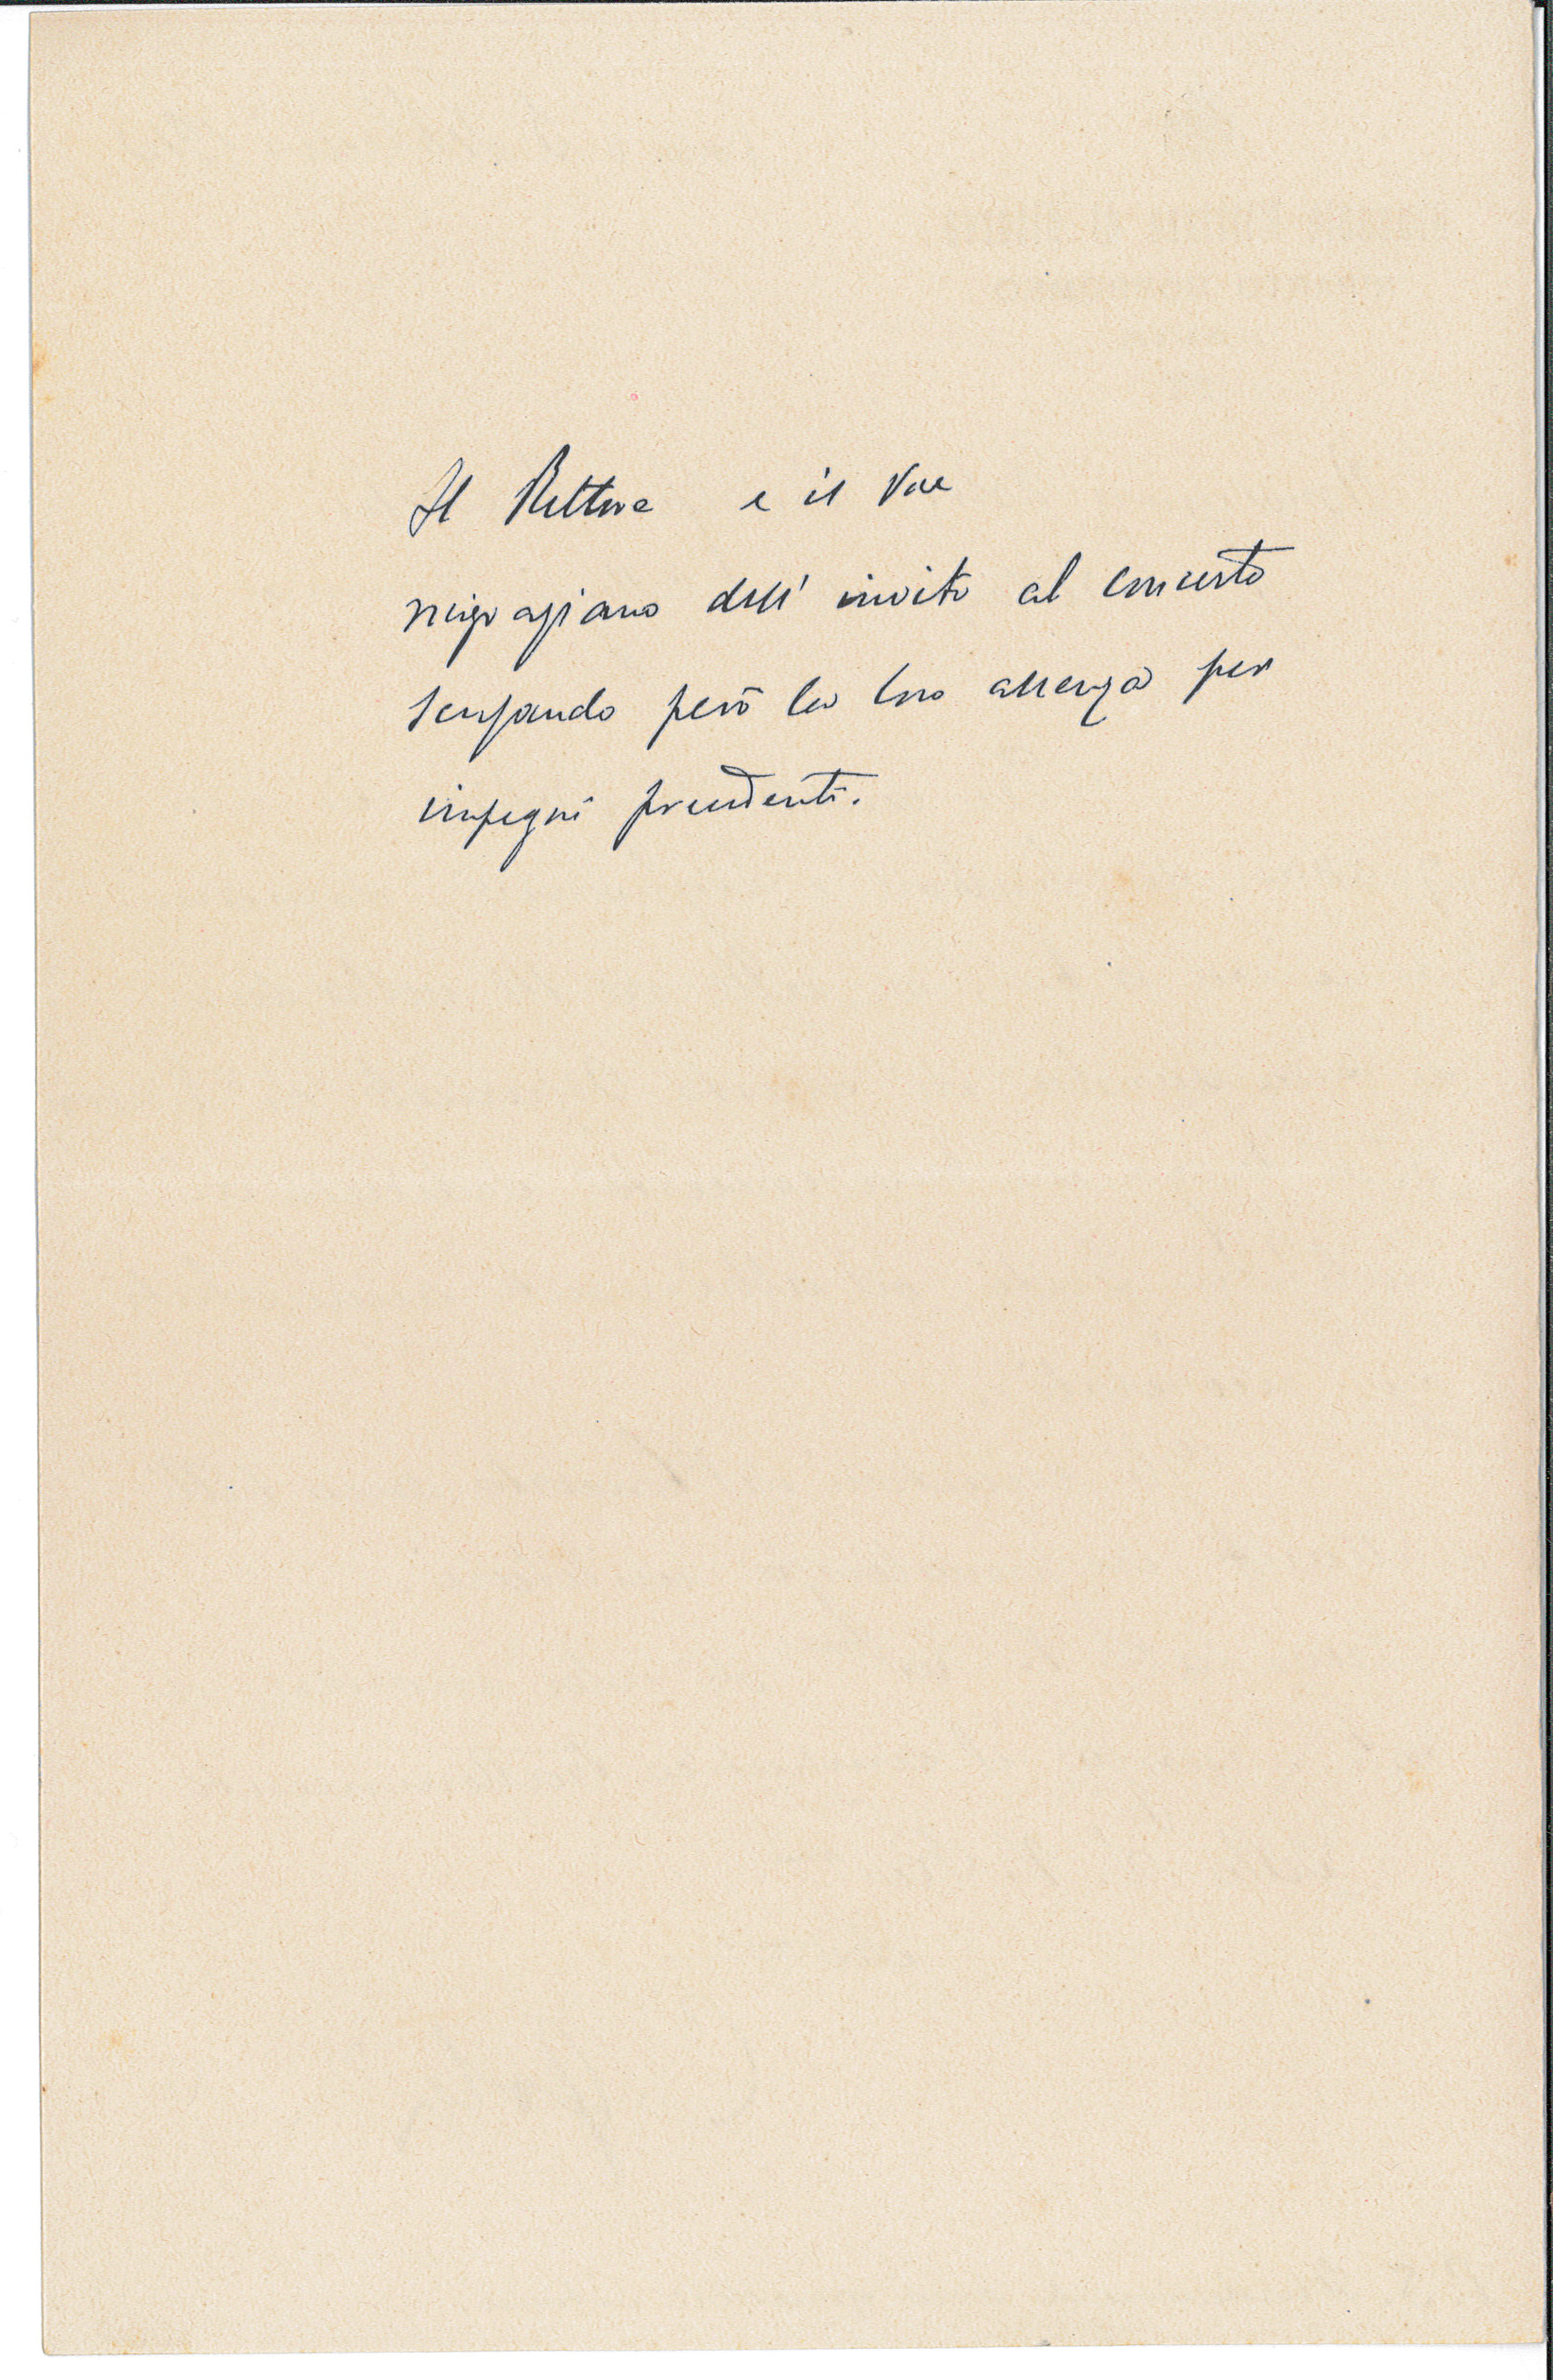 Il Rettore e il Vice
ringraziano dell' invito al concerto
scusando però la loro assenza per
impegni precedenti.